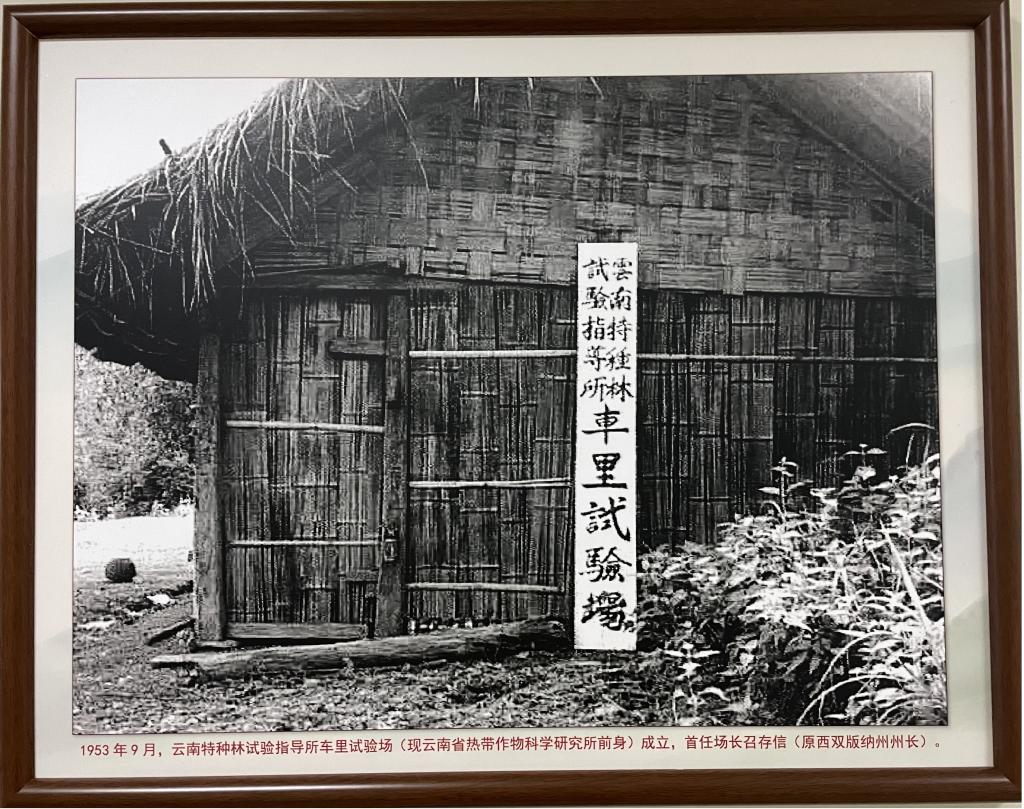 雲南特種林
試驗指導所
車里試驗場
1953年9月，云南特种林试验指导所车里试验场（现云南省热带作物科学研究所前身）成立，首任场长召存信（原西双版纳州州长）。